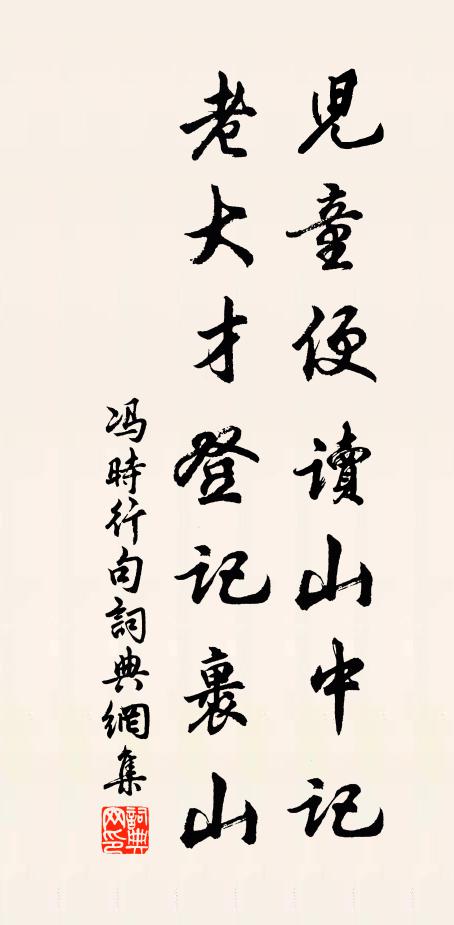 兒童便讀山中記
老大才登記裏山
冯時行句詞典網集
詞典網印